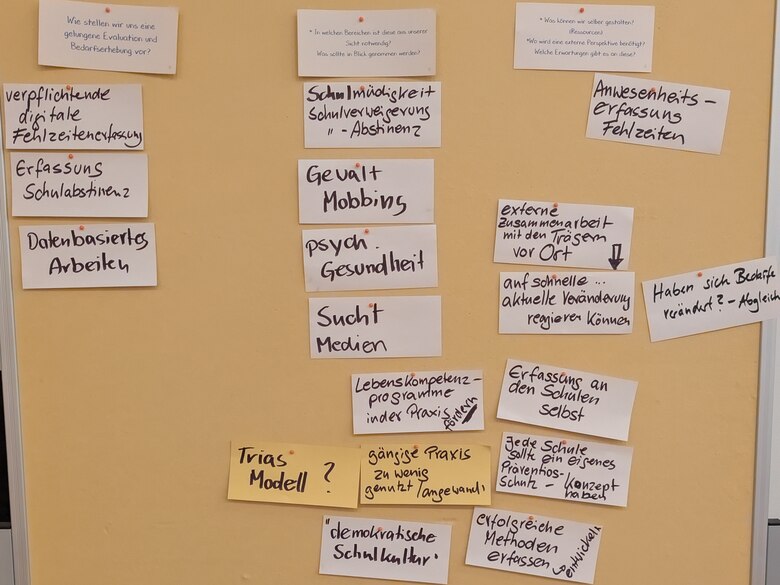 Wie stellen wir uns eine
gelungene Evaluation und
Bedarfserhebung vor?
verpflichtende
digitale
Fehlzeitenerfassung
Erfassung
Schulabstinenz
Datenbasiertes
Arbeiten
* In welchen Bereichen ist diese aus unserer
Sicht notwendig?
Was sollte in Blick genommen werden?
Schulmüdigkeit
Schulverweigerung
" - Abstinenz
Gewalt
Mobbing
psych.
Gesundheit
Sucht
Medien
Lebenskompetenz-
programme
in der Praxis
fördern
Trias
Modell ?
gängige Praxis
zu wenig
genutzt / angewand
"demokratische
Schulkultur"
* Was können wir selber gestalten?
(Ressourcen)
*Wo wird eine externe Perspektive benötigt?
Welche Erwartungen gibt es an diese?
Anwesenheits-
erfassung
Fehlzeiten
externe
Zusammenarbeit
mit den Trägern
vor Ort
auf schnelle ...
aktuelle Veränderung
regieren können
Haben sich Bedarfe
verändert? - Abgleich
Erfassung an
den Schulen
selbst
Jede Schule
sollte ein eigenes
Präventios-
Schutz - Konzept
haben
erfolgreiche
Methoden
erfassen
entwickeln